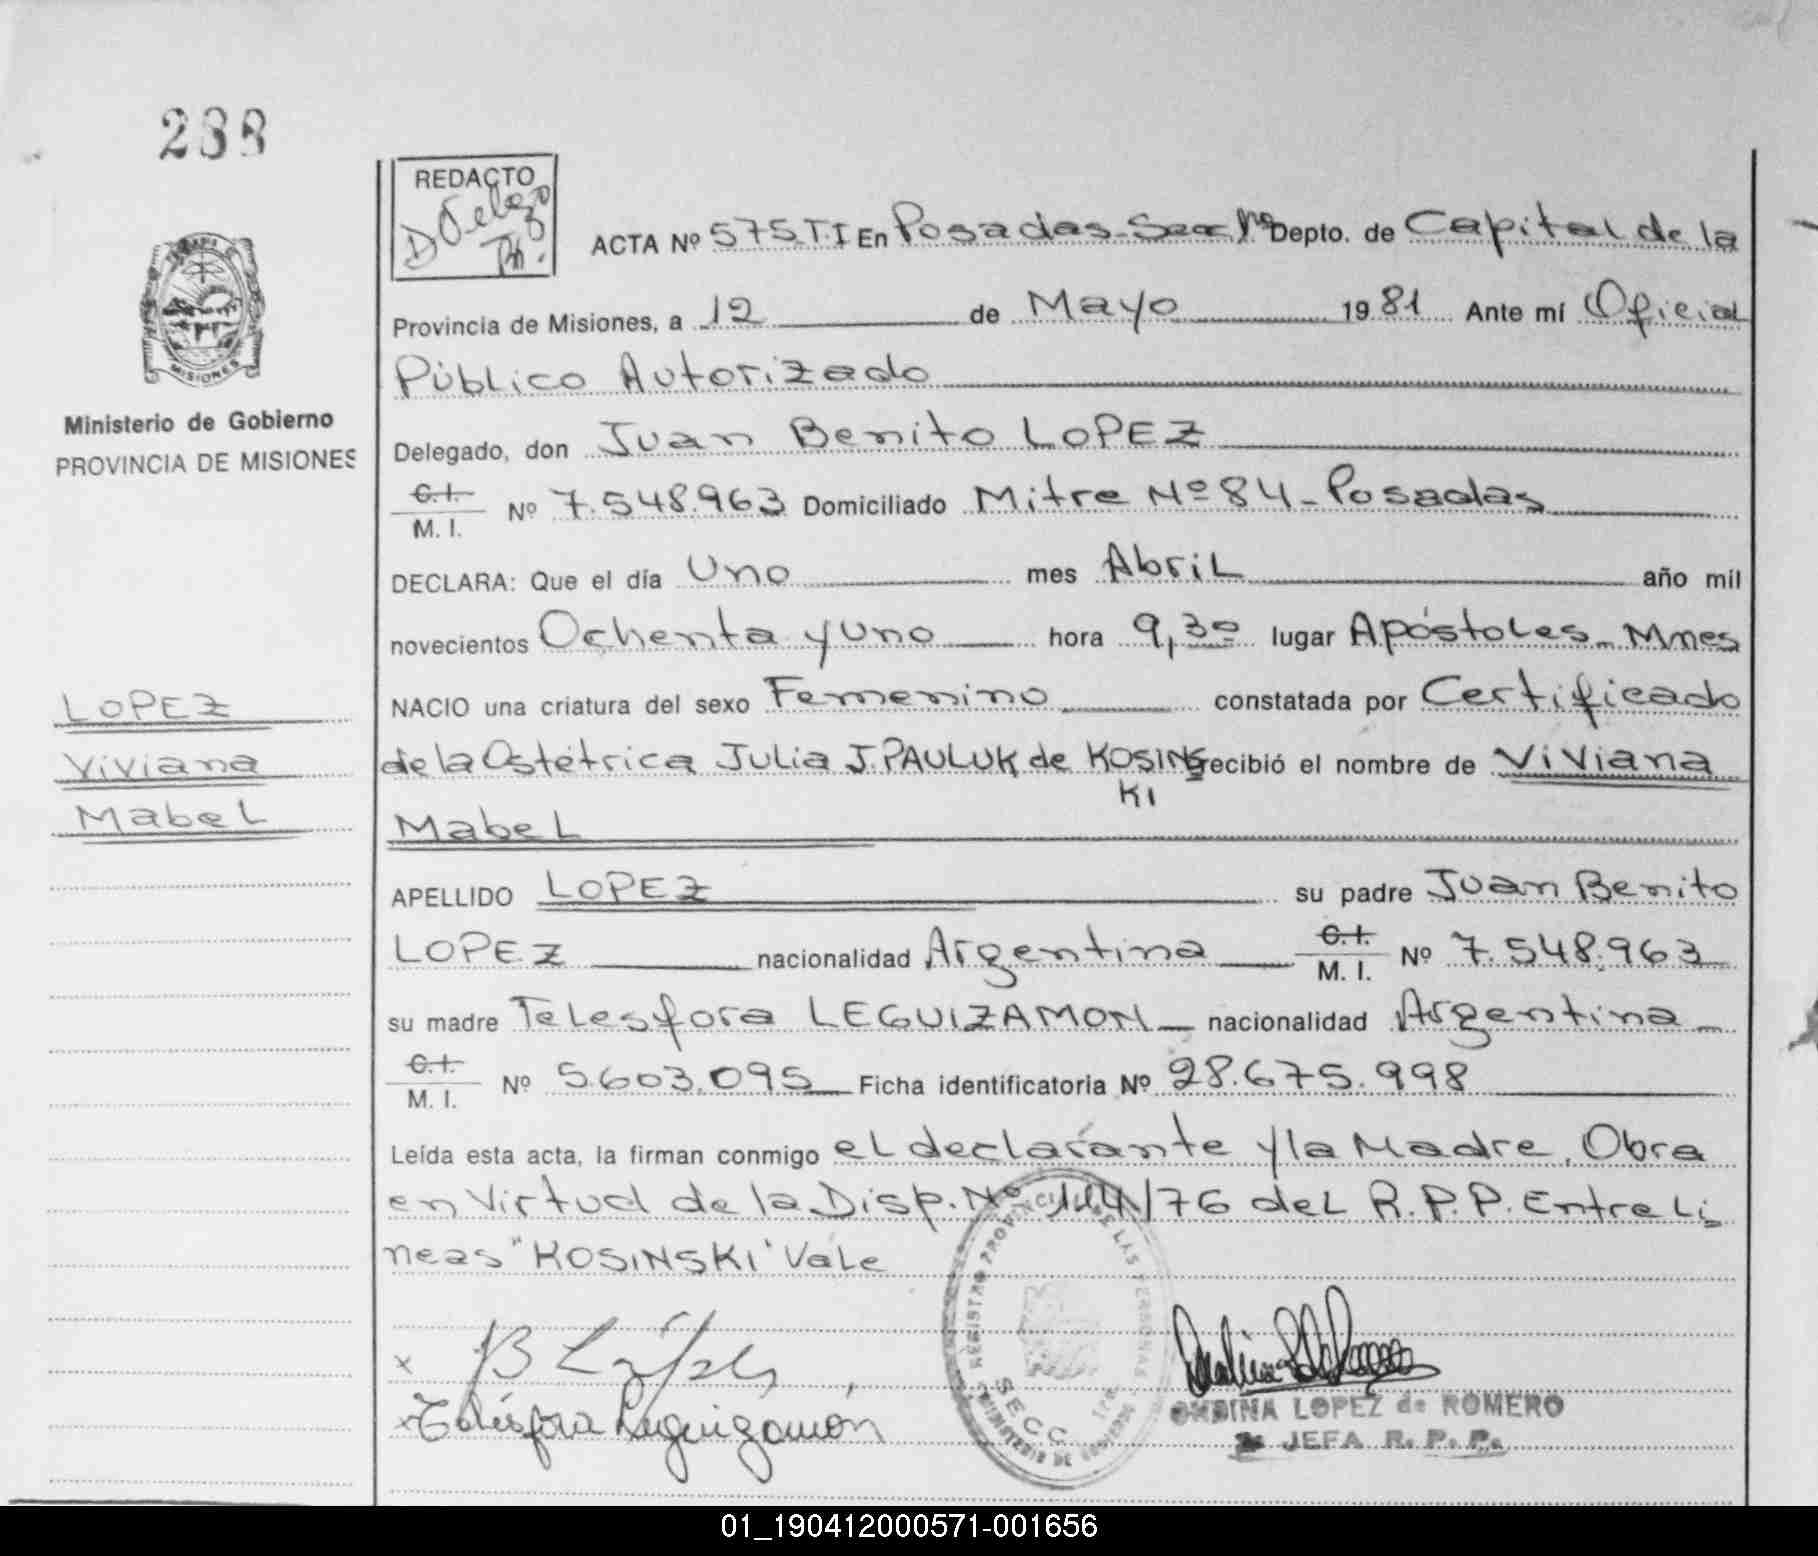 288
REDACTO
ACTA Nº 575 T.I En Posadas - Secc 1ra Depto. de Capital de la
Provincia de Misiones, a 12 de Mayo 1981 Ante mí Oficial
Público Autorizado
MISIONES
Ministerio de Gobierno
PROVINCIA DE MISIONES
Delegado, don Juan Benito LOPEZ
C.I.
M. I. Nº 7.548.963 Domiciliado Mitre Nº 84 - Posadas
DECLARA: Que el día Uno mes Abril año mil
novecientos Ochenta y Uno hora 9,30 lugar Apóstoles - Mnes
NACIO una criatura del sexo Femenino constatada por Certificado
de la Ostétrica Julia J. PAULUK de KOSINS recibió el nombre de Viviana
KI
Mabel
LOPEZ
Viviana
Mabel
APELLIDO LOPEZ su padre Juan Benito
LOPEZ nacionalidad Argentina C.I.
M. I. Nº 7.548.963
su madre Telesfora LEGUIZAMON - nacionalidad Argentina -
C.I.
M. I. Nº 5.603.095 Ficha identificatoria Nº 28.675.998
Leída esta acta, la firman conmigo el declarante y la Madre. Obra
en Virtud de la Disp. Nº 114/76 del R.P.P. Entre Lí
neas "KOSINSKI" Vale
REGISTRO PROVINCIAL DE LAS PERSONAS
SECC 1ra
MINISTERIO DE GOBIERNO
x B López
x Telésfora Leguizamón
ONDINA LOPEZ de ROMERO
JEFA R. P. P.
01_190412000571-001656